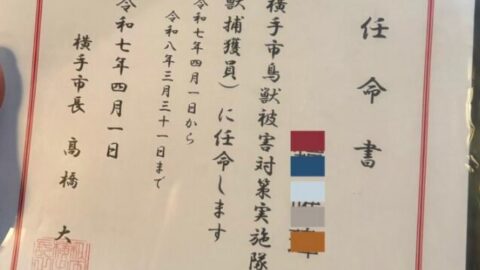 任命書
横手市鳥獣被害対策実施隊
獣捕獲員）に任命します
令和七年四月一日から
令和八年三月三十一日まで
令和七年四月一日
横手市長 高橋 大